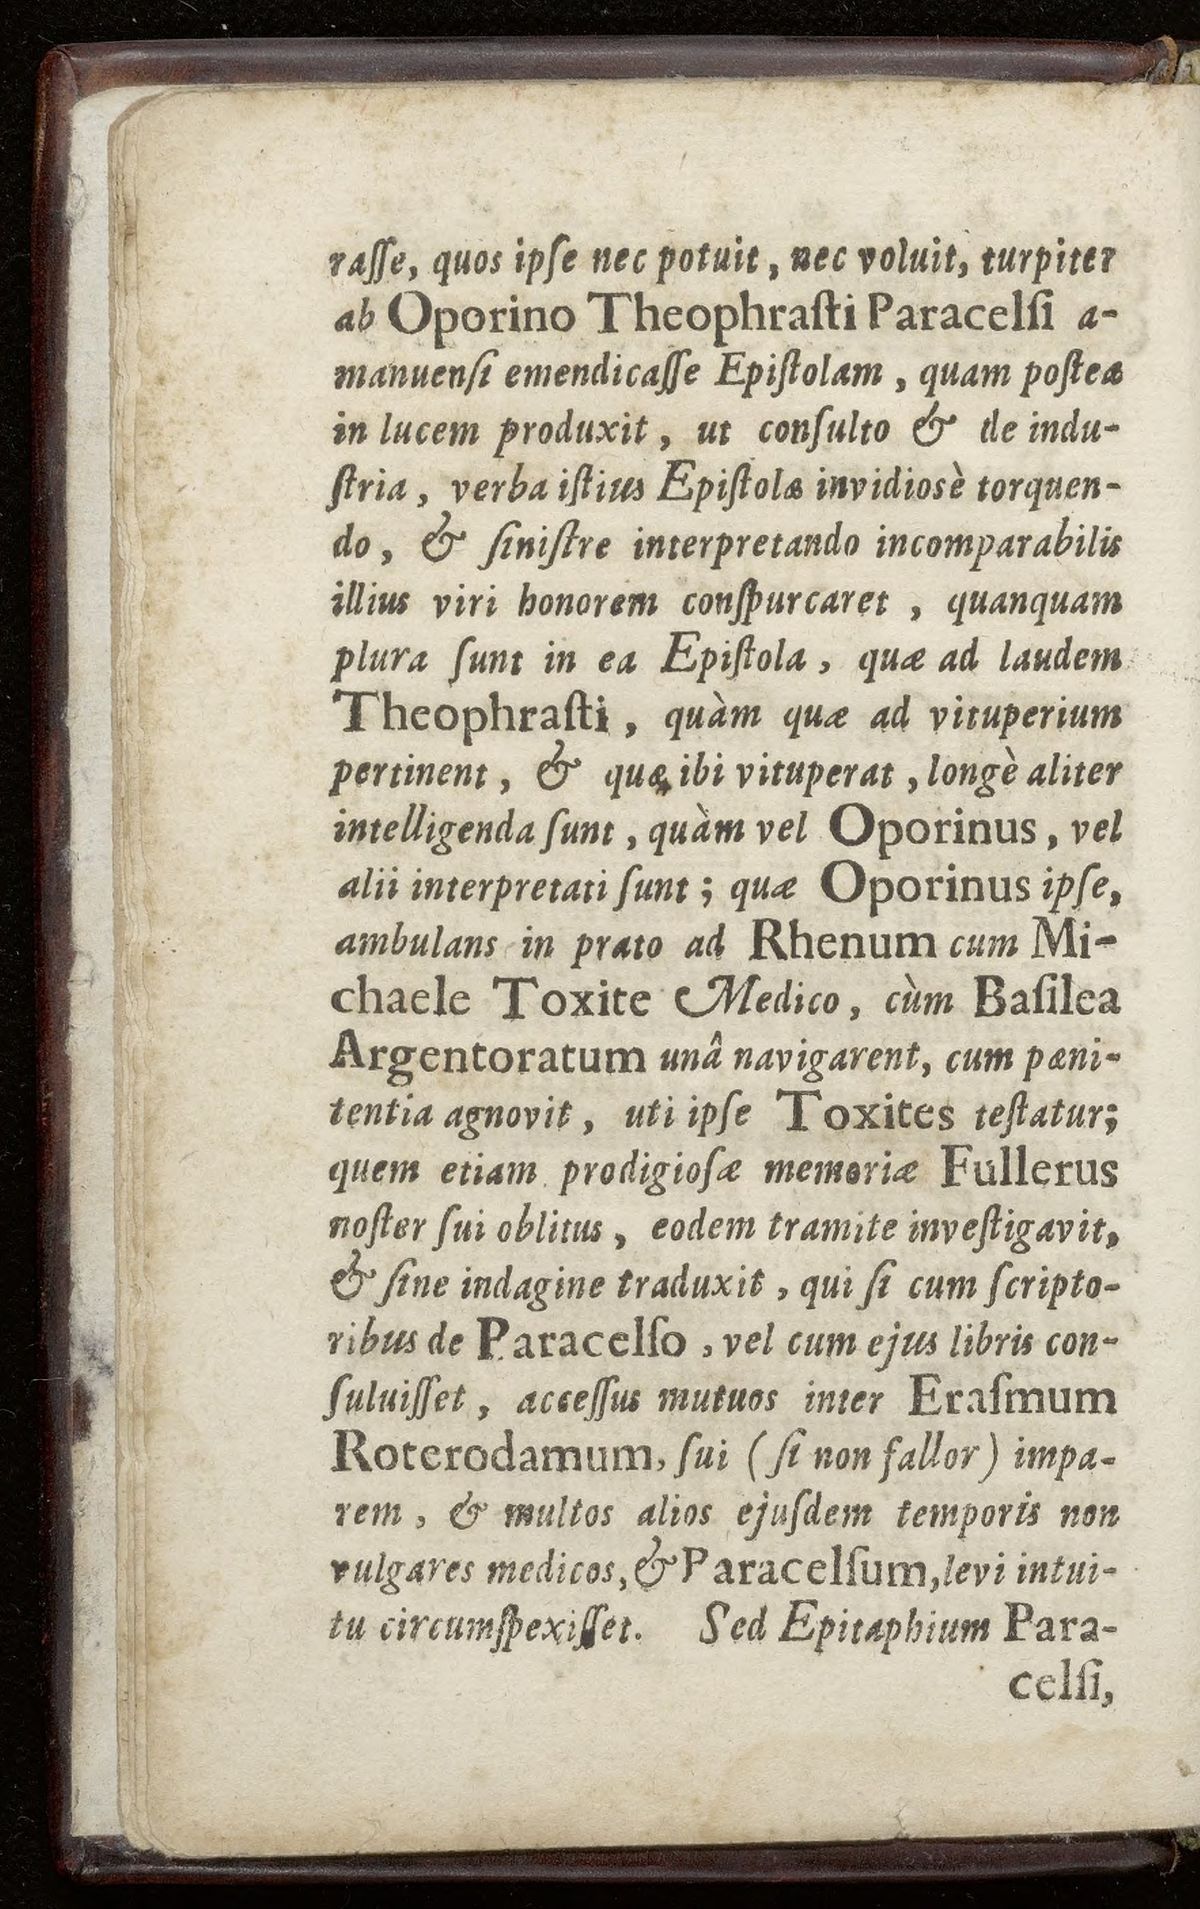 raſſe, quos ipſe nec potuit, nec voluit, turpiter
ab Oporino Theophraſti Paracelſi a-
manuenſi emendicaſſe Epiſtolam, quam poſtea
in lucem produxit, ut conſulto & de indu-
ſtria, verba iſtius Epiſtolæ invidiosè torquen-
do, & ſiniſtre interpretando incomparabilis
illius viri honorem conſpurcaret, quanquam
plura ſunt in ea Epiſtola, quæ ad laudem
Theophraſti, quàm quæ ad vituperium
pertinent, & quæ ibi vituperat, longè aliter
intelligenda ſunt, quàm vel Oporinus, vel
alii interpretati ſunt; quæ Oporinus ipſe,
ambulans in prato ad Rhenum cum Mi-
chaele Toxite Medico, cùm Baſilea
Argentoratum unâ navigarent, cum pæni-
tentia agnovit, uti ipſe Toxites teſtatur;
quem etiam prodigioſæ memoriæ Fullerus
noſter ſui oblitus, eodem tramite inveſtigavit,
& ſine indagine traduxit, qui ſi cum ſcripto-
ribus de Paracelſo, vel cum ejus libris con-
ſuluiſſet, acceſſus mutuos inter Eraſmum
Roterodamum, ſui (ſi non fallor) impa-
rem, & multos alios ejuſdem temporis non
vulgares medicos, & Paracelſum, levi intui-
tu circumſpexiſſet. Sed Epitaphium Para-
celſi,